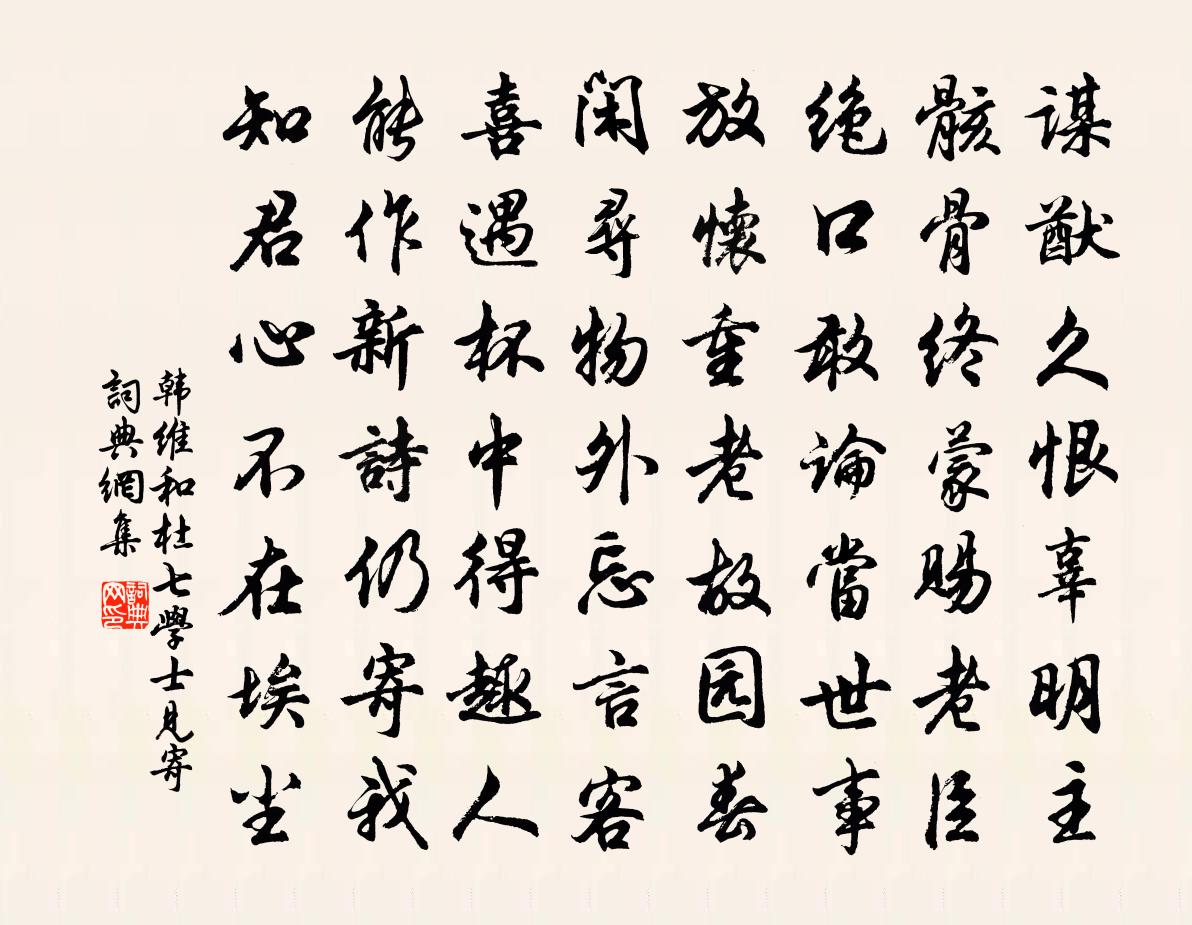 謀猷久恨辜明主
骸骨终蒙赐老臣
绝口敢論當世事
放懷重老故园春
闲尋物外忘言客
喜遇杯中得趣人
能作新詩仍寄我
知君心不在埃尘
韩维和杜七學士見寄
詞典網集
詞典
网印